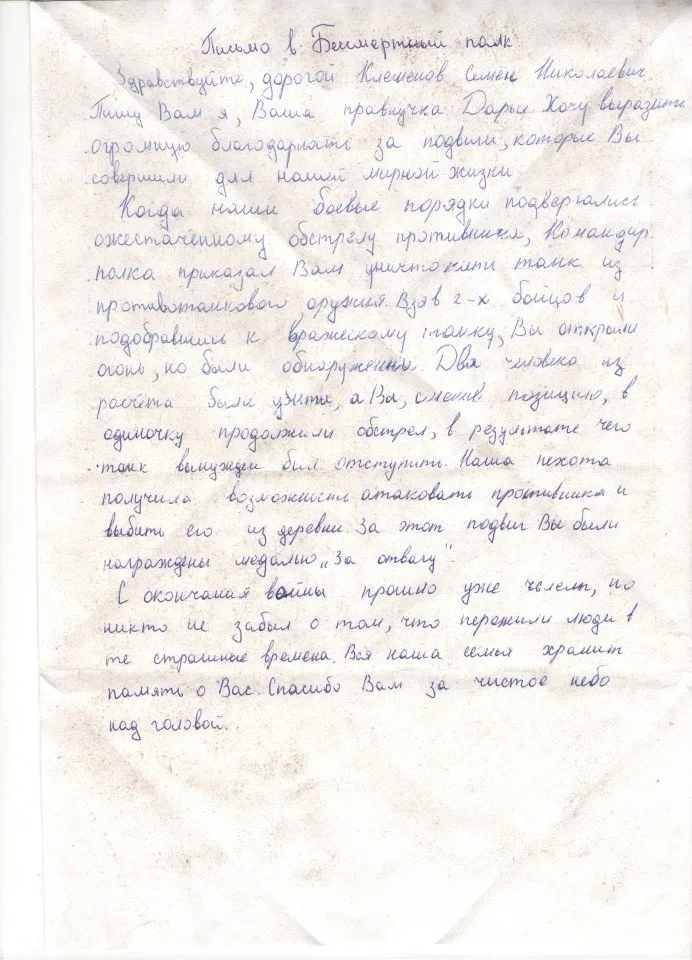 Письмо в Бессмертный полк
Здравствуйте, дорогой Клеменов Семен Николаевич.
Пишу Вам я, Ваша правнучка Дарья. Хочу выразить
огромную благодарность за подвиги, которые Вы
совершили для нашей мирной жизни
Когда наши боевые порядки подвергались
ожестаченному обстрелу противника, Командир
полка приказал Вам уничтожить танк из
противотанкового оружия. Взяв 2-х бойцов и
подобравшись к вражескому танку, Вы открыли
огонь, но были обнаружены. Два человека из
расчёта были убиты, а Вы, сменив позицию, в
одиночку продолжили обстрел, в результате чего
танк вынужден был отступить. Наша пехота
получила возможность атаковать противника и
выбить его из деревни. За этот подвиг Вы были
награждены медалью „За отвагу".
С окончания войны прошло уже, но
никто не забыл о том, что пережили люди в
те страшные времена. Вся наша семья хранит
память о Вас. Спасибо Вам за чистое небо
над головой.